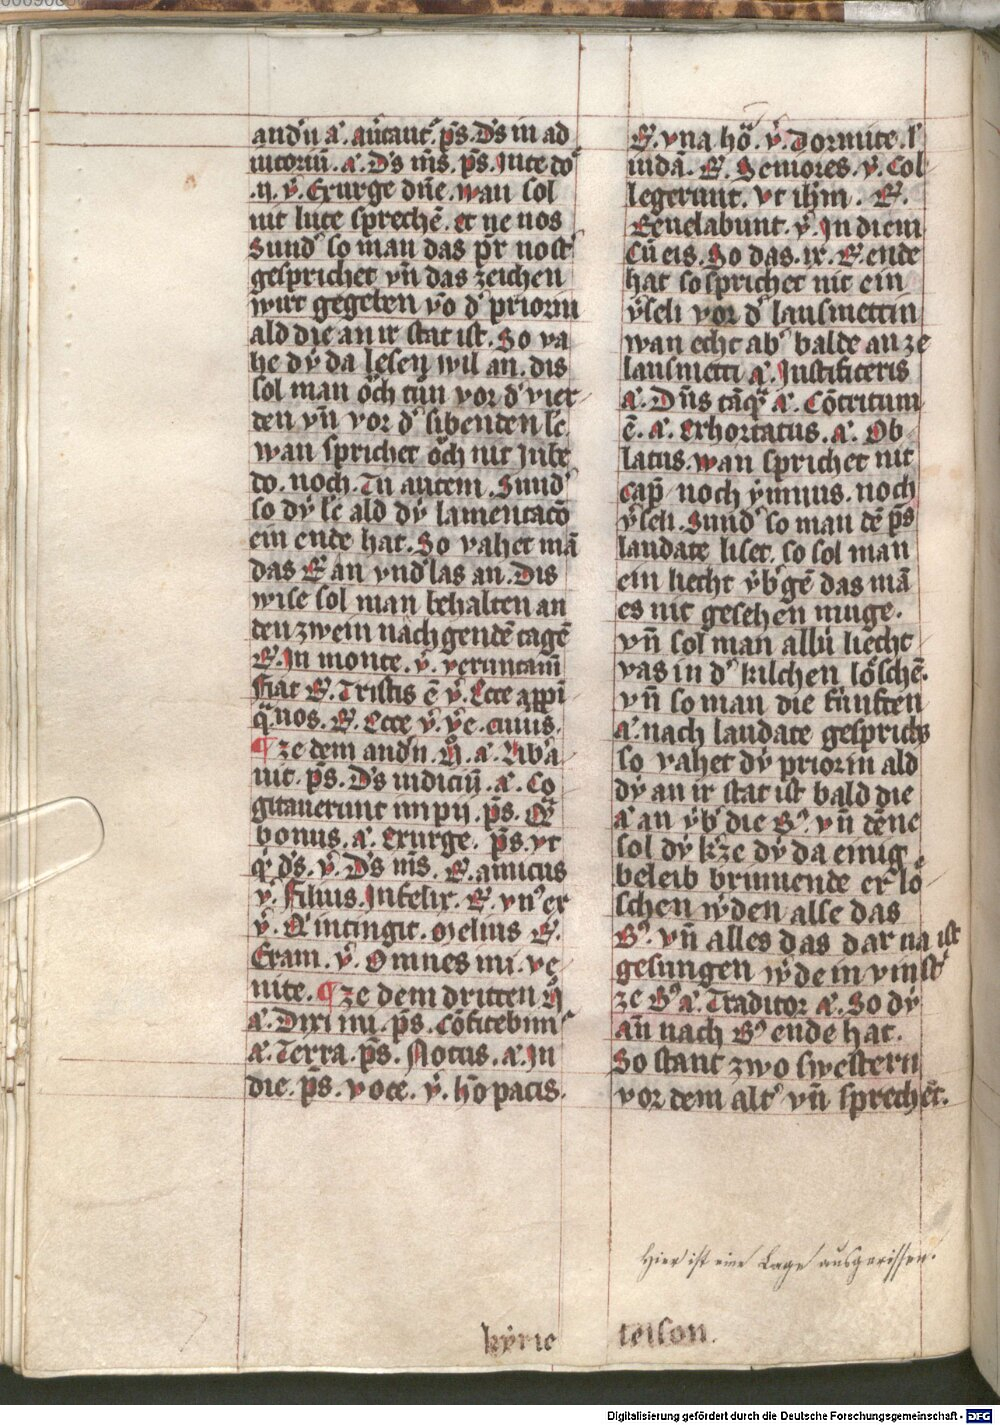 andʼn aͨ. auͤtantͬ. p̄s. Ds in ad
iutoriū. aͨ. Ds ms. p̄s. Jn te do
.ij. v̊. Exurge dn̄e. wan sol
nit lute sprechē. et ne nos
Sundʼ so man das pr̄ nostʼ
gesprichet vn̄ das zeichen
wirt gegeben vō dʼ priorin
ald die an ir stat ist. So va
he dv̍ da lesen wil an. dis
sol man oͧch tuͦn vor dʼ vier
den vn̄ vor dʼ sibenden lē
wan sprichet oͧch nit Jube
do. noch. Tu autem. Sundʼ
so dv̍ lē ald dv̍ lamentacō
ein ende hat. So vahet mā
das R̶ an vndʼ las an. Dis
wise sol man behalten an
den zwein nach gendē tagē
R̶. Jn monte. v̊. verumtam̄
fiat R̶. Tristis ē v̊. Ecce app̄i
q̄nos. R̶. Ecce v̊. v̊e. cuius.
¶ ze dem andʼn. N̊. aͨ. Libʼa
uit. p̄s. Ds iudiciū. aͨ. Co
gitauerunt impij. p̄s. Qm̄
bonus. aͨ. Exurge. p̄s. vt
qʼ ds. v̊. Ds ms. R̶. amicus
v̊. filius. Jnfelix. R̶. vnʼ ex
v̊. Qi intingit. Melius R̶.
Eram. v̊. Omnes ini. ve
nite. ¶ ze dem dritten N̊
aͨ. Dixi ini. p̄s. Cōfitebimʼ
aͨ. Terra. p̄s. Notus. aͨ. Jn
die. p̄s. voce. v̊. hō pacis.
R̶. vna hoͣ v̊. Dormite. lʼ
iudā. R̶. Seniores. v̊. Col
legerunt. vt ih̄m. R̶.
Reuelabunt. v̊. Jn diem
Cū eis. So das. ix. R̶. ende
hat so sprichet nit ein
v̊seli vor dʼ lausmettin
wan echt abʼ balde an ze
lausmetti aͨ. Justificeris
aͨ. Dn̄s tāqʼ aͨ. Cōtritum
ē. aͨ. Exhortatus. aͨ. Ob
latus. wan sprichet nit
cap̄ noch ymnus. noch
v̊seli. Sundʼ so man dē p̄s
laudate liset. so sol man
ein liecht v̍bʼgē das mā
es nit gesehen muge.
vn̄ sol man allu̍ liecht
vas in dʼ kilchen loͤschē.
vn̄ so man die fu̍nften
aͨ. nach laudate gesprichʒ
so vahet dv̍ priorin ald
dv̍ an ir stat ist bald die
aͨ an v̍bʼ die Bʼ. vn̄ dēne
sol dv̍ kʼze dv̍ da einig
beleib brinnende erʼloͤ
schen wʼden alse das
Bʼ. vn̄ alles das dar na ist
gesungen wʼde in vinstʼ
ze Bʼ aͨ. Traditor aͨ. So dv̍
an̄ nach Bʼ ende hat.
So stant zwo swestern
vor dem altʼ vn̄ sprechēt.
Hier ist eine Lage ausgerissen.
kyrie leison.
Digitalisierung gefördert durch die Deutsche Forschungsgemeinschaft - DFG